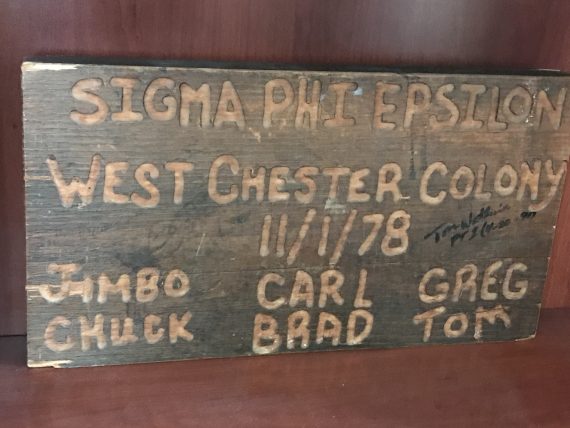 SIGMA PHI EPSILON
WEST CHESTER COLONY
11/1/78
JIMBO CARL GREG
CHUCK BRAD TOM